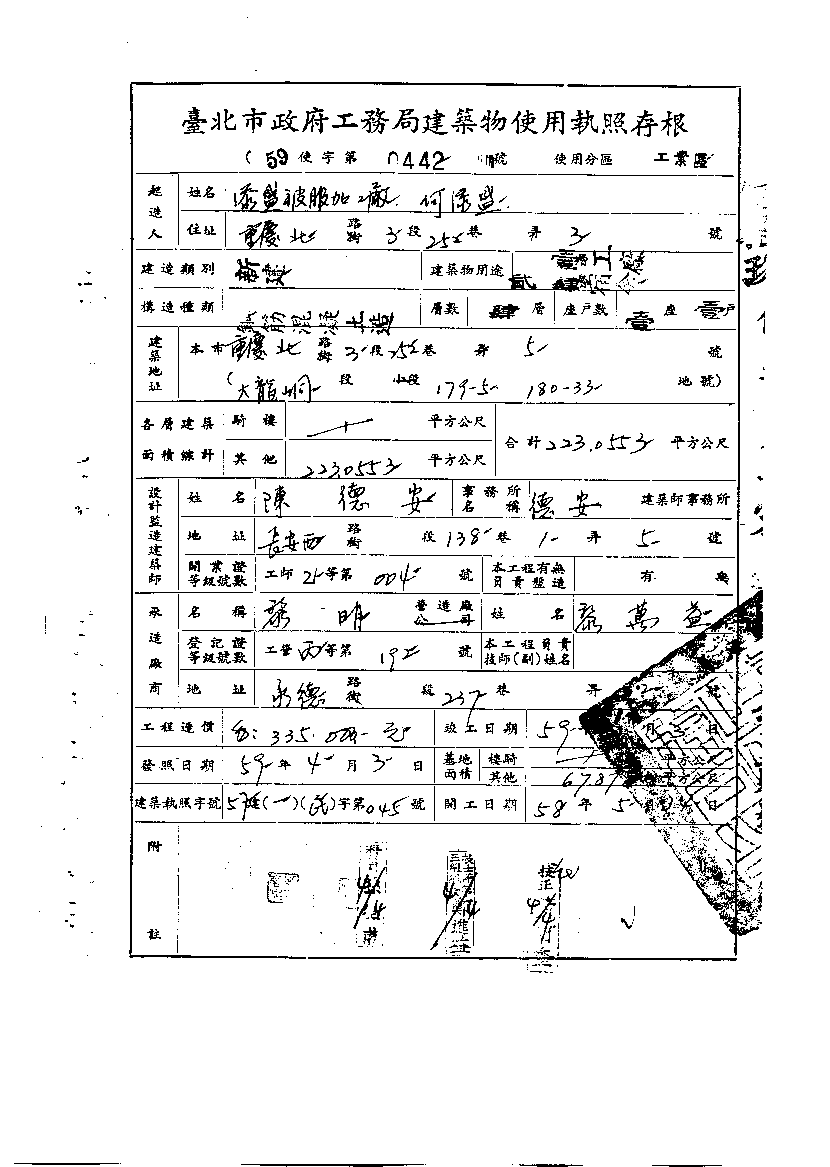 臺北市政府工務局建築物使用執照存根
(59使字第0442號 使用分區 工業區
起造人 姓名 添盛被服加工廠 何添盛
住址 重慶北路街3段252巷 弄3號
建造類別 新建 建築物用途
構造種類 鋼筋混凝土造 層數 肆層 座戶數 壹座壹戶
建築地址 本市重慶北路街3段252巷 弄5號
(大龍峒段 小段 179-5 180-33 地號)
各層建築面積總計 騎樓 平方公尺 合計223.0553平方公尺
其他 223.0553平方公尺
設計監造建築師 姓名 陳德安 事務所名稱 德安 建築師事務所
地址 長安西路街 段138巷1弄5號
開業證等級號數 工師 等第004號 本工程有無負責監造 有 無
承造廠商 名稱 黎明 營造廠公司 姓名 黎萬益
登記證等級號數 工營丙等第192號 本工程負責技師(副)姓名
地址 承德路街 段237巷 弄 2號
工程造價 335. 元 竣工日期 59年 月 日
發照日期 59年4月3日 基地面積 樓騎 平方公尺
其他 平方公尺
建築執照字號 57建(一)(民)字第045號 開工日期 58年5月 日
附註